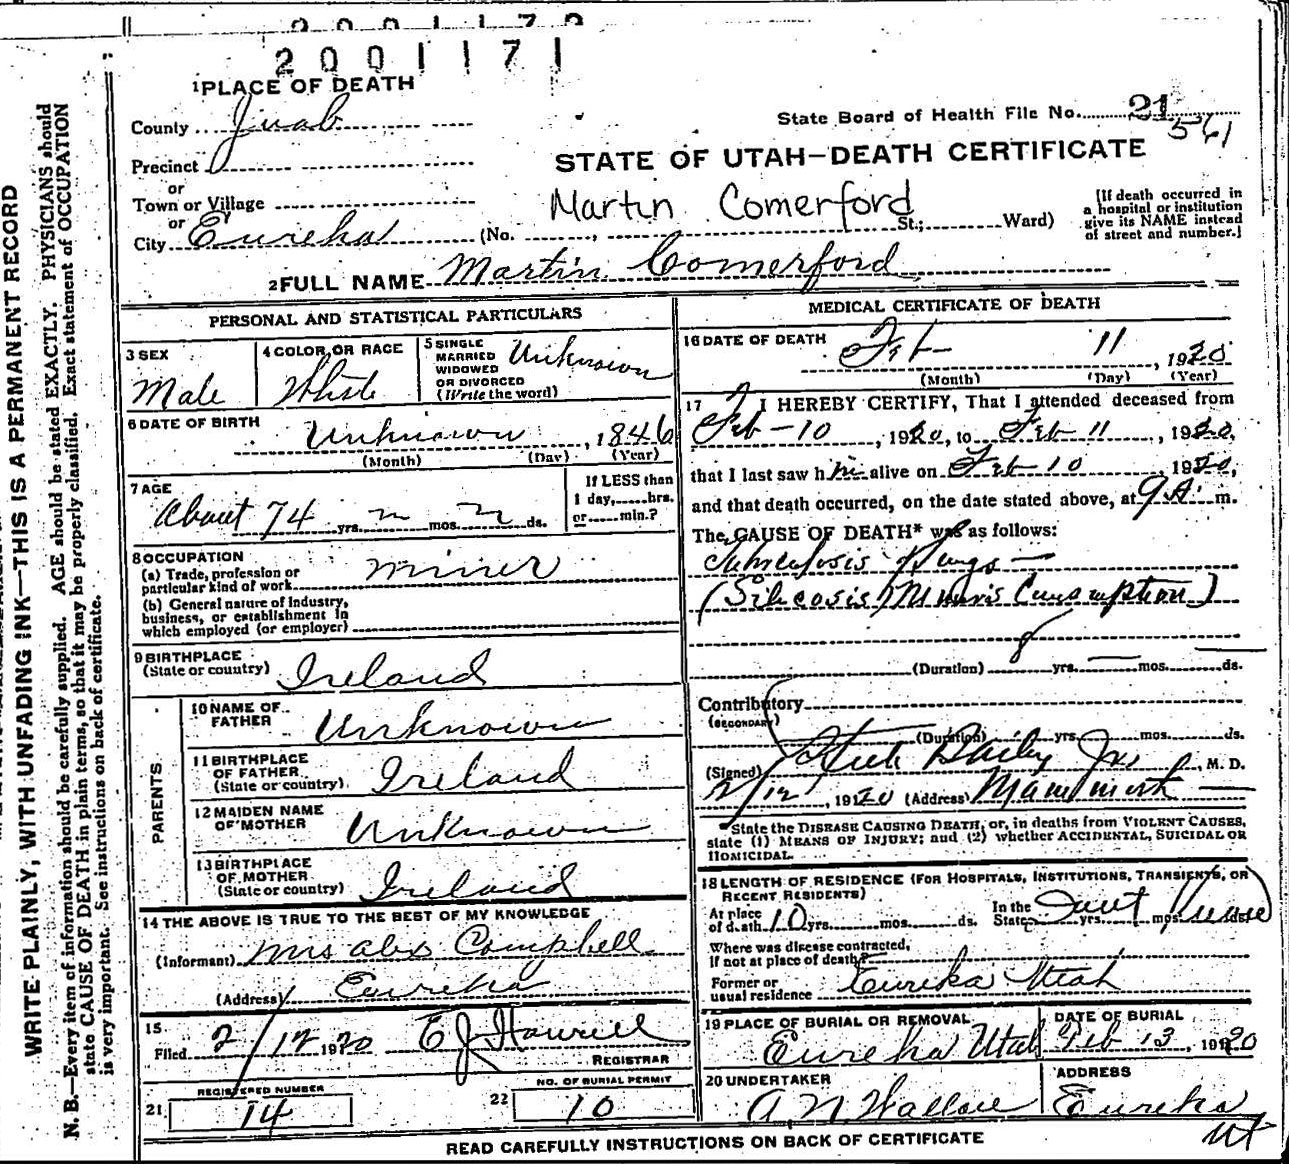 2001171
2001171
1 PLACE OF DEATH
County Juab
State Board of Health File No. 21
561
Precinct
STATE OF UTAH—DEATH CERTIFICATE
or
Town or Village
Martin Comerford
or
City Eureka (No. , St.; Ward)
[If death occurred in
a hospital or institution
give its NAME instead
of street and number.]
2 FULL NAME Martin Comerford
PERSONAL AND STATISTICAL PARTICULARS
3 SEX
Male
4 COLOR OR RACE
White
5 SINGLE
MARRIED
WIDOWED
OR DIVORCED
(Write the word)
Unknown
6 DATE OF BIRTH
Unknown , 1846
(Month) (Day) (Year)
7 AGE
About 74 yrs. mos. ds.
If LESS than
1 day, hrs.
or min.?
8 OCCUPATION
(a) Trade, profession or
particular kind of work
miner
(b) General nature of industry,
business, or establishment in
which employed (or employer)
9 BIRTHPLACE
(State or country) Ireland
PARENTS
10 NAME OF
FATHER Unknown
11 BIRTHPLACE
OF FATHER
(State or country) Ireland
12 MAIDEN NAME
OF MOTHER Unknown
13 BIRTHPLACE
OF MOTHER
(State or country) Ireland
14 THE ABOVE IS TRUE TO THE BEST OF MY KNOWLEDGE
(Informant) Mrs Alex Campbell
(Address) Eureka
15
Filed 2/12 1920 E J
REGISTRAR
REGISTERED NUMBER
21 14
NO. OF BURIAL PERMIT
22 10
MEDICAL CERTIFICATE OF DEATH
16 DATE OF DEATH
Feb 11 , 1920
(Month) (Day) (Year)
17 I HEREBY CERTIFY, That I attended deceased from
Feb-10 , 1920, to Feb 11 , 1920,
that I last saw him alive on Feb 10 , 1920,
and that death occurred, on the date stated above, at 9 A. m.
The CAUSE OF DEATH* was as follows:
Tuberculosis Lungs
(Silicosis Miners Consumption)
(Duration) 8 yrs. — mos. — ds.
Contributory
(SECONDARY)
(Duration) yrs. mos. ds.
(Signed) Steele Bailey Jr. , M. D.
2/12 , 1920 (Address) Mammoth
*State the DISEASE CAUSING DEATH, or, in deaths from VIOLENT CAUSES,
state (1) MEANS OF INJURY; and (2) whether ACCIDENTAL, SUICIDAL OR
HOMICIDAL.
18 LENGTH OF RESIDENCE (FOR HOSPITALS, INSTITUTIONS, TRANSIENTS, OR
RECENT RESIDENTS)
At place
of death 10 yrs. mos. ds.
In the
State yrs. mos. ds.
Where was disease contracted,
if not at place of death?
Former or
usual residence Eureka Utah
19 PLACE OF BURIAL OR REMOVAL
Eureka Utah
DATE OF BURIAL
Feb 13 , 1920
20 UNDERTAKER
A N Wallace
ADDRESS
Eureka
Ut
READ CAREFULLY INSTRUCTIONS ON BACK OF CERTIFICATE
WRITE PLAINLY, WITH UNFADING INK—THIS IS A PERMANENT RECORD
N. B.—Every item of information should be carefully supplied. AGE should be stated EXACTLY. PHYSICIANS should
state CAUSE OF DEATH in plain terms, so that it may be properly classified. Exact statement of OCCUPATION
is very important. See instructions on back of certificate.